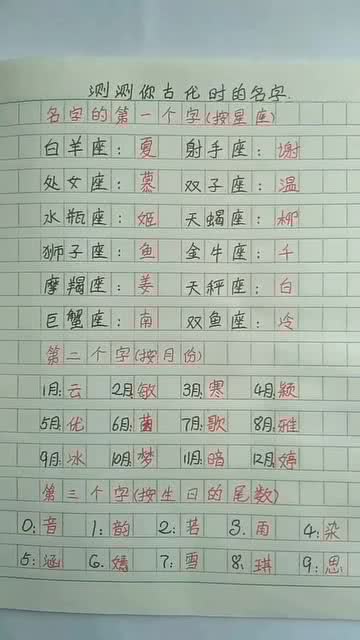 测测你古代时的名字.
名字的第一个字(按星座)
白羊座：夏 射手座：谢
处女座：慕 双子座：温
水瓶座：姬 天蝎座：柳
狮子座：鱼 金牛座：千
摩羯座：姜 天秤座：白
巨蟹座：南 双鱼座：冷
第二个字(按月份)
1月：云 2月：敏 3月：寒 4月：颖
5月：优 6月：茵 7月：歌 8月：雅
9月：冰 10月：梦 11月：暗 12月：婷
第三个字(按生日的尾数)
0：音 1：韵 2：若 3.雨 4：染
5：涵 6.嫣 7：雪 8：琪 9：思